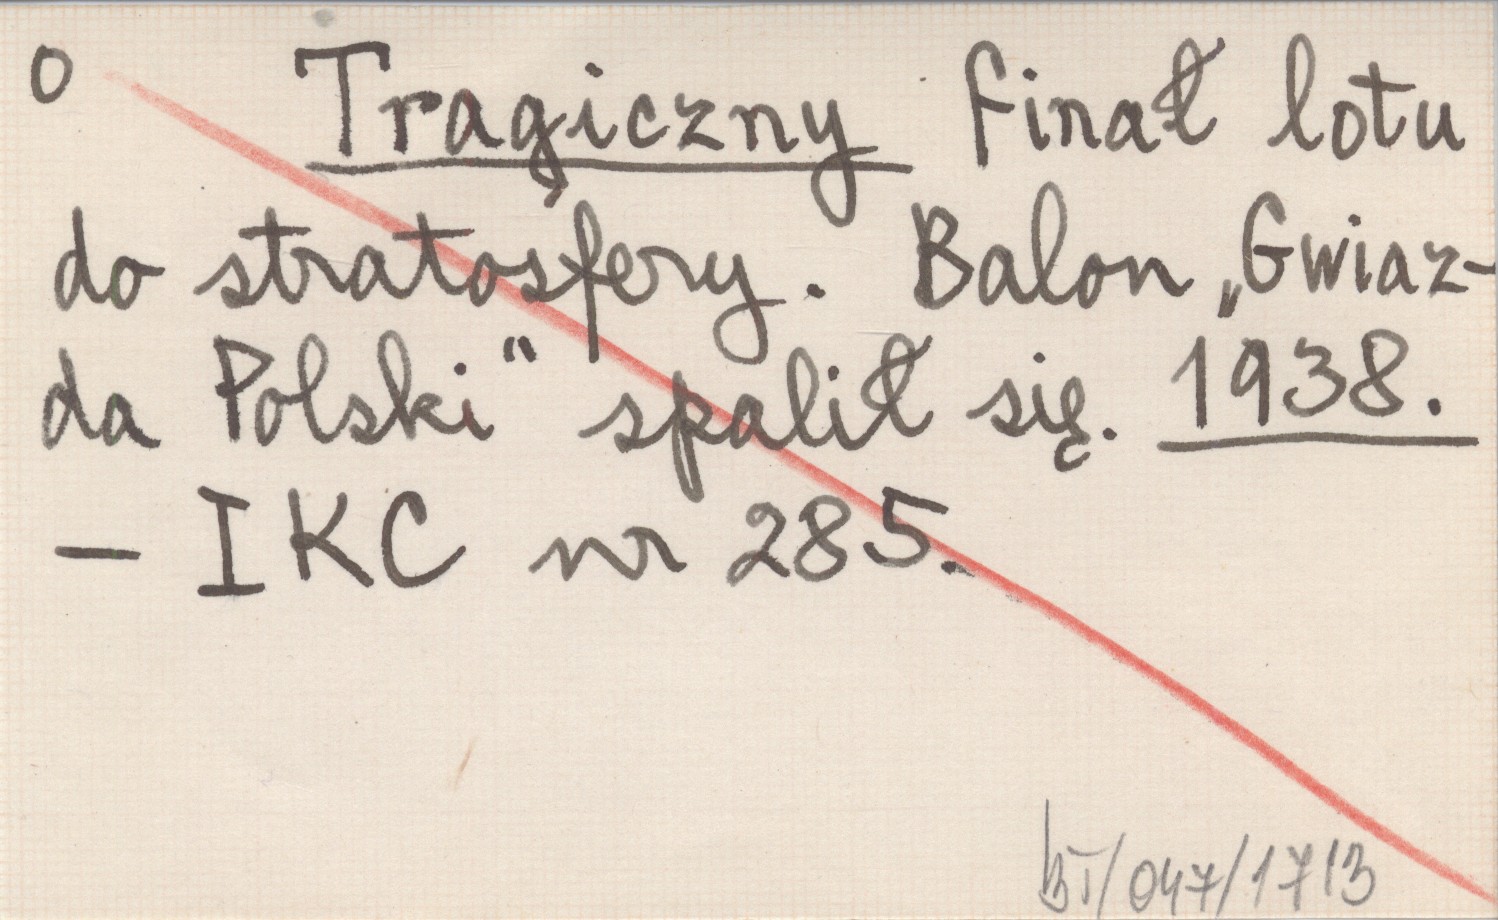 o Tragiczny finał lotu
do stratosfery. Balon „Gwiaz-
da Polski" spalił się. 1938.
— IKC nr 285.
BT/047/1713